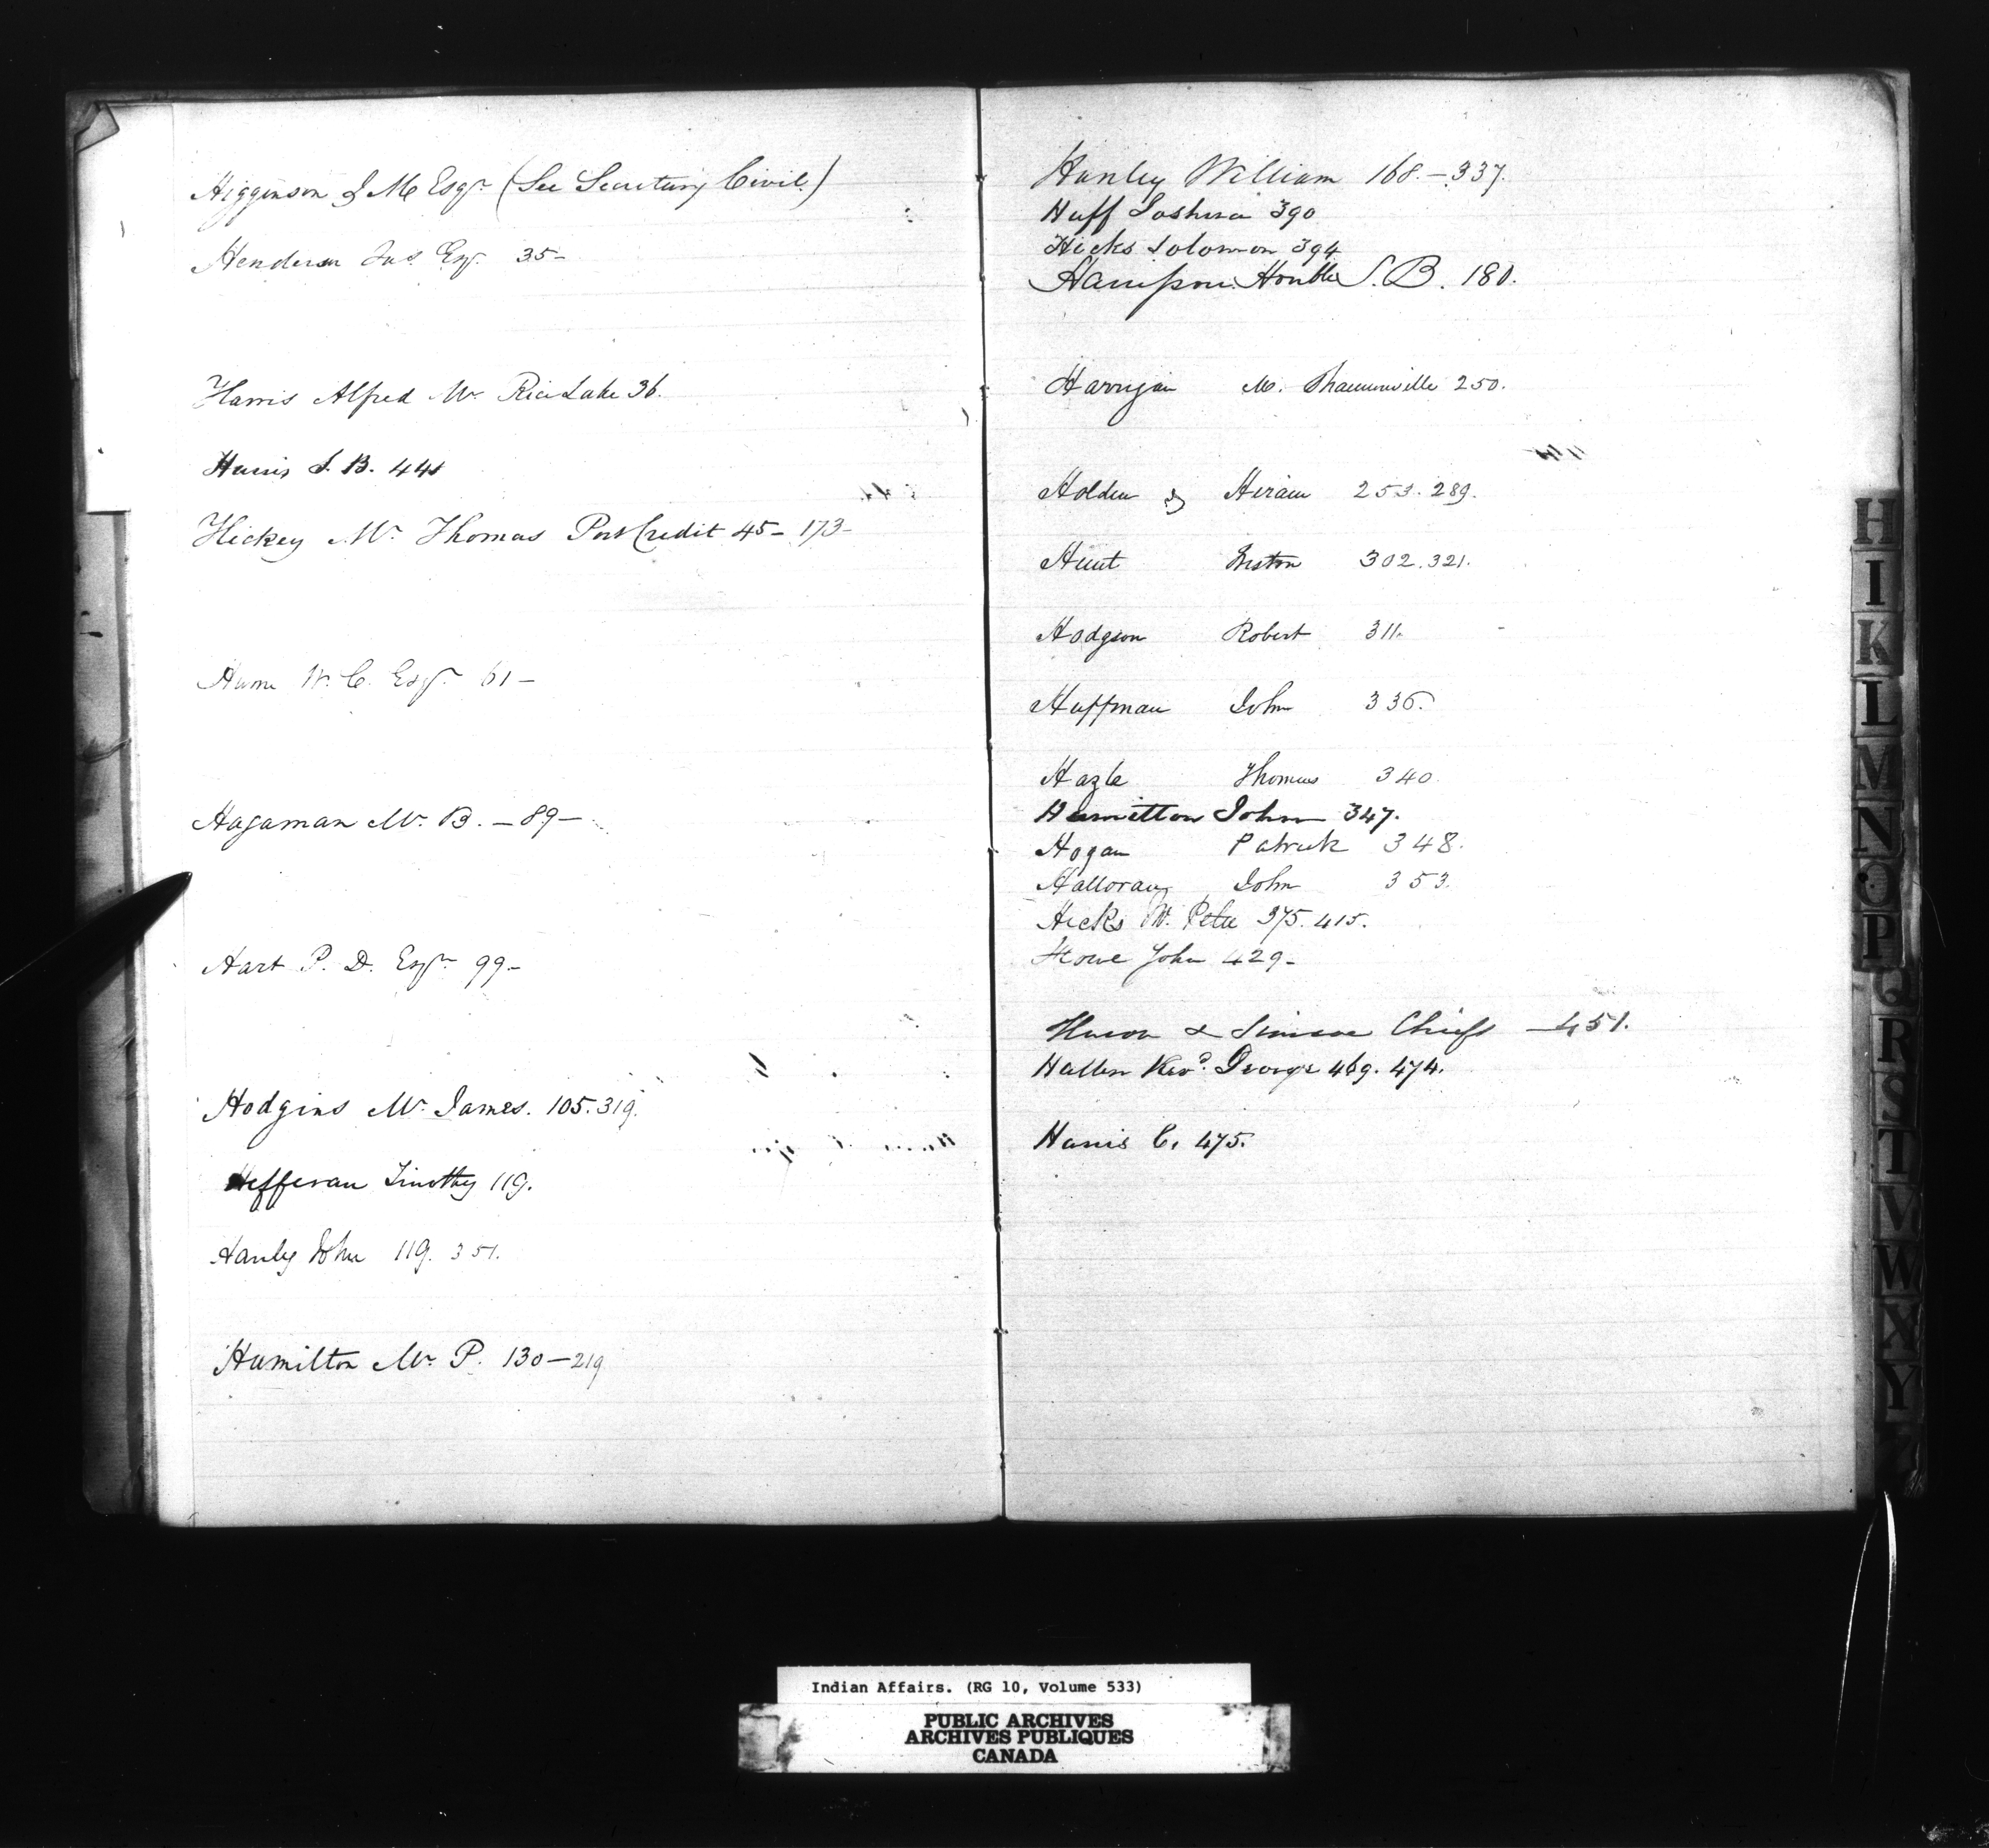 Higginson J M Esqr (See Secretary Civil)
Henderson Jas. Esq. 35-
Harris Alfred Mr Rice Lake 36.
Harris J. B. 441
Hickey Mr Thomas Port Credit 45- 173-
Hume W. C. Esqr 61-
Hagaman Mr B. - 89-
Hart P. D. Esqr 99-
Hodgins Mr James. 105.319.
Hefferan Timothy 119.
Hanly John 119. 351.
Hamilton Mr P. 130-219
Hanley William 168.-337.
Huff Joshua 390
Hicks Solomon 394
Harrison Honble S. B. 180.
Harrigan M. Shannonville 250.
Holden Hiram 253. 289.
Hunt 302. 321.
Hodgson Robert 311.
Huffman John 336.
Hazle Thomas 340.
Hamilton John 347.
Hogan Patrick 348.
Halloran John 353.
Hicks W. Peter 375. 415.
Howe John 429-
Huron & Simcoe Chiefs -451.
Hallen Revd. George 469. 474.
Harris C. 475.
H
I
K
L
M
N
O
P
Q
R
S
T
V
W
X
Y
Z
Indian Affairs. (RG 10, Volume 533)
PUBLIC ARCHIVES
ARCHIVES PUBLIQUES
CANADA